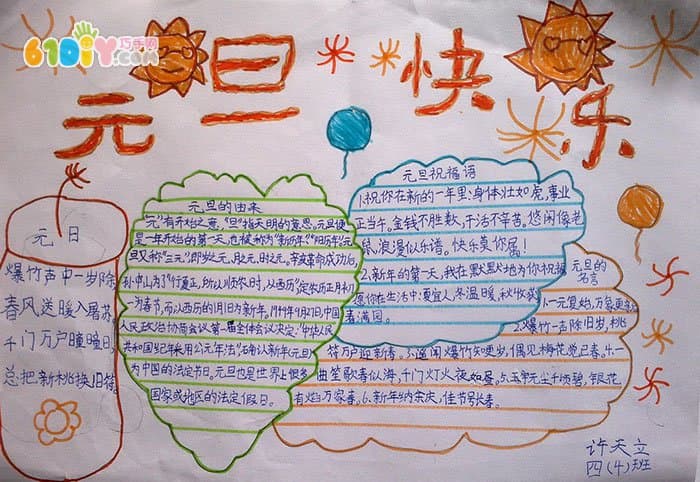 61DIY巧手网
.com
元旦快乐
元日
爆竹声中一岁除
春风送暖入屠苏
千门万户曈曈日
总把新桃换旧符
元旦的由来
"元"有开始之意,"旦"指天明的意思。元旦便
是一年开始的第一天,也被称为"新历年""阳历年"元
旦又称"三元"即岁之元、月之元、时之元。辛亥革命成功后,
孙中山为了"行夏正,所以顺农时,从西历"定农历正月初
一为春节,而以西历的1月1日为新年。1949年9月27日,中国
人民政治协商会议第一届全体会议决定:"中华人民
共和国纪年采用公元年法"确认新年(元旦)
为中国的法定节日。元旦也是世界上很多
国家或地区的法定假日。
元旦祝福语
1.祝你在新的一年里:身体壮如虎,事业
正当午。金钱不胜数,干活不辛苦。悠闲像老
鼠,浪漫似乐谱。快乐莫你属!
2.新年的第一天,我在默默地为你祝福
愿你在生活中:夏宜人,冬温暖,秋收获
春满园。
元旦的
名言
1.一元复始,万象更新
2.爆竹一声除旧岁,桃
符万户迎新春。3.遥闻爆竹知更岁,偶见梅花觉已春。4.一
曲笙歌春似海,千门灯火夜如昼。5.五甲元尘千顷碧,银花
有焰万家春。6.新年纳余庆,佳节号长春。
许天立
四(4)班